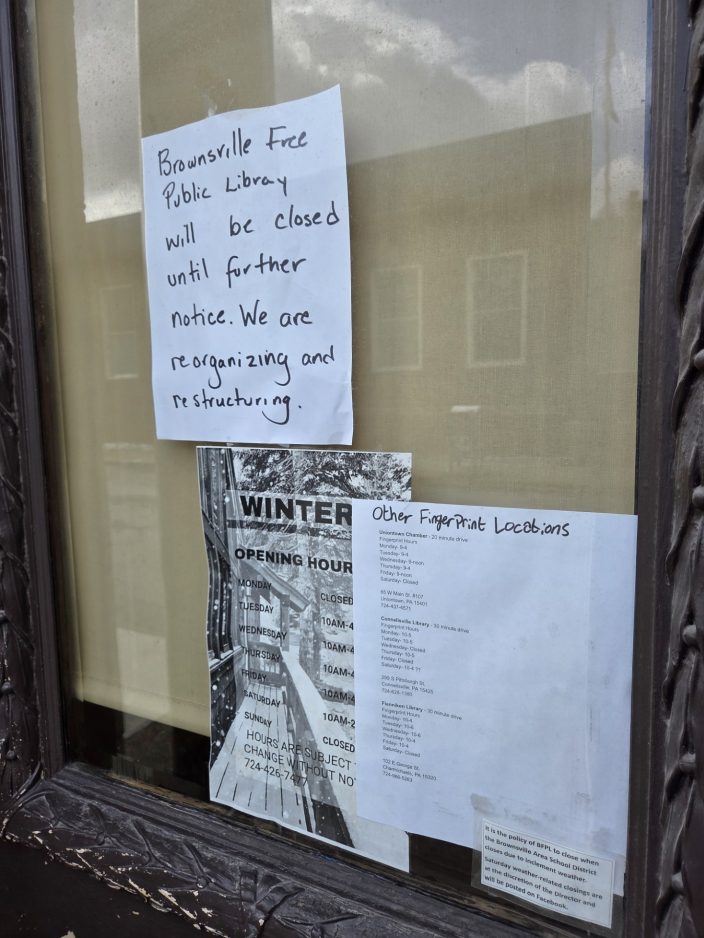 Brownsville Free
Public Library
will be closed
until further
notice. We are
reorganizing and
restructuring.
WINTER
OPENING HOUR
MONDAY CLOSED
TUESDAY 10AM-4
WEDNESDAY 10AM-4
THURSDAY 10AM-4
FRIDAY 10AM-4
SATURDAY 10AM-2
SUNDAY CLOSED
HOURS ARE SUBJECT
CHANGE WITHOUT NO
724-426-7477
Other FingerPrint Locations
Uniontown Chamber - 20 minute drive
Fingerprint Hours
Monday- 9-4
Tuesday- 9-4
Wednesday- 8-noon
Thursday- 9-4
Friday- 8-noon
Saturday- Closed
65 W Main St. #107
Uniontown, PA 15401
724-437-4571
Connellsville Library - 30 minute drive
Fingerprint Hours
Monday- 10-5
Tuesday- 10-5
Wednesday- Closed
Thursday- 10-5
Friday- Closed
Saturday- 10-4
299 S Pittsburgh St.
Connellsville, PA 15425
724-628-1380
Flenniken Library - 30 minute drive
Fingerprint Hours
Monday- 10-4
Tuesday- 10-6
Wednesday- 10-6
Thursday- 10-4
Friday- 10-4
Saturday- Closed
102 E George St.
Charmichaels, PA 15320
724-966-5263
It is the policy of BFPL to close when
the Brownsville Area School District
closes due to inclement weather.
Saturday weather-related closings are
at the discretion of the Director and
will be posted on Facebook.